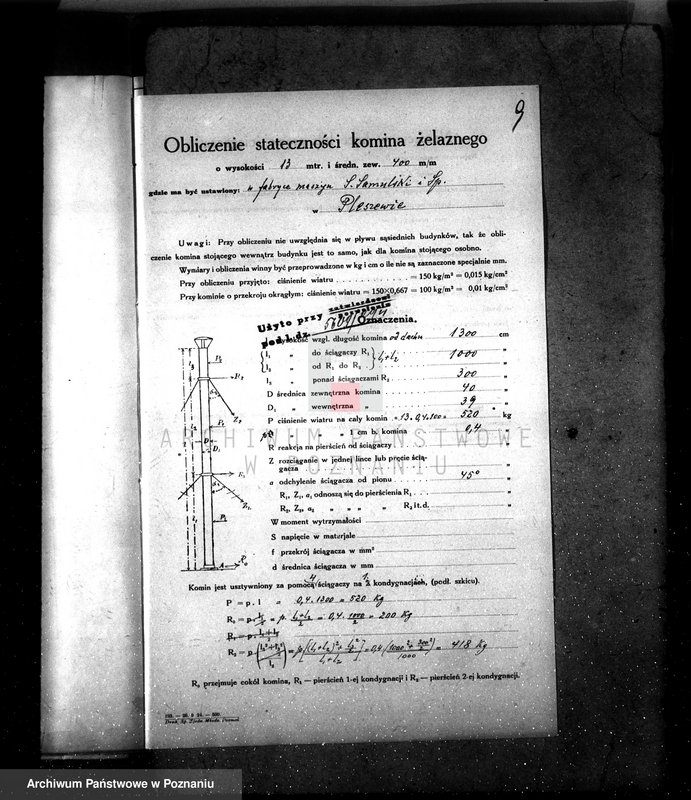 9
Obliczenie stateczności komina żelaznego
o wysokości 13 mtr. i średn. zew. 400 m/m
gdzie ma być ustawiony: w fabryce maszyn S. Samulski i Sp.
w Pleszewie
Uwagi: Przy obliczeniu nie uwzględnia się w pływu sąsiednich budynków, tak że obli-
czenie komina stojącego wewnątrz budynku jest to samo, jak dla komina stojącego osobno.
Wymiary i obliczenia winny być przeprowadzone w kg i cm o ile nie są zaznaczone specjalnie mm.
Przy obliczeniu przyjęto: ciśnienie wiatru = 150 kg/m² = 0,015 kg/cm²
Przy kominie o przekroju okrągłym: ciśnienie wiatru = 150×0,667 = 100 kg/m² = 0,01 kg/cm²
Użyto przy zaświadczeni
pod l. dz.
Oznaczenia.
wysokość wzgl. długość komina od dachu 1300 cm
l₁ „ do ściągaczy R₁ } l₁+l₂ 1000 „
l₂ „ od R₁ do R₂ „
l₃ „ ponad ściągaczami R₂ 300 „
D średnica zewnętrzna komina 40 „
D₁ „ wewnętrzna „ 39 „
P ciśnienie wiatru na cały komin = 13.0,4.100 = 520 kg
p „ „ 1 cm b. komina 0,4 „
R reakcja na pierścień od ściągaczy „
Z rozciąganie w jednej lince lub pręcie ścią-
gacza „
α odchylenie ściągacza od pionu 45° „
R₁, Z₁, α₁ odnoszą się do pierścienia R₁ „
R₂, Z₂, α₂ „ „ „ „ R₂ it.d. „
W moment wytrzymałości
S napięcie w materjale
f przekrój ściągacza w mm²
d średnica ściągacza w mm
Komin jest usztywniony za pomocą 4 ściągaczy na 1 kondygnacjach, (podł. szkicu).
P = p. l = 0,4.1300 = 520 Kg
R₀ = p. l₁/2 = p. (l₁+l₂)/2 = 0,4. 1000/2 = 200 Kg
R₁ = p. (l₁+l₂)/2
R₂ = p. = p [(l₁+l₂)²+l₃²/ l₁+l₂] = 0,4 (1000²+300²/1000) = 418 Kg
R₀ przejmuje cokół komina, R₁ — pierścień 1-ej kondygnacji i R₂ — pierścień 2-ej kondygnacji.
ARCHIWUM PAŃSTWOWE
W POZNANIU
Archiwum Państwowe w Poznaniu